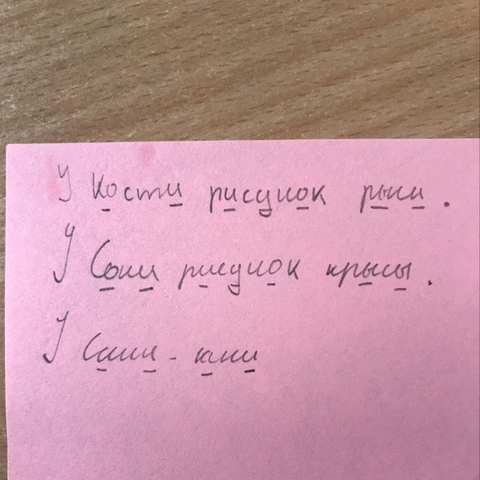 У Кости рисунок рыси.
У Сони рисунок крысы.
У Сани -